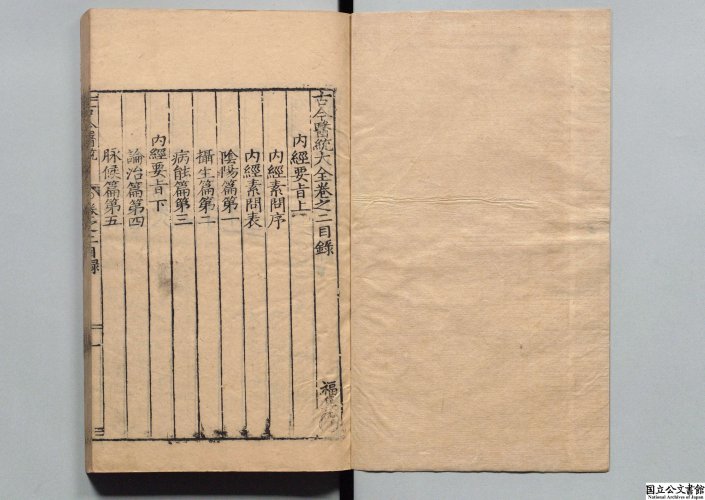 古今醫統大全卷之二目錄
內經要旨上
內經素問序
內經素問表
陰陽篇第一
攝生篇第二
病能篇第三
內經要旨下
論治篇第四
脉候篇第五
古今醫統 卷之二目錄
一
福
国立公文書館
National Archives of Japan